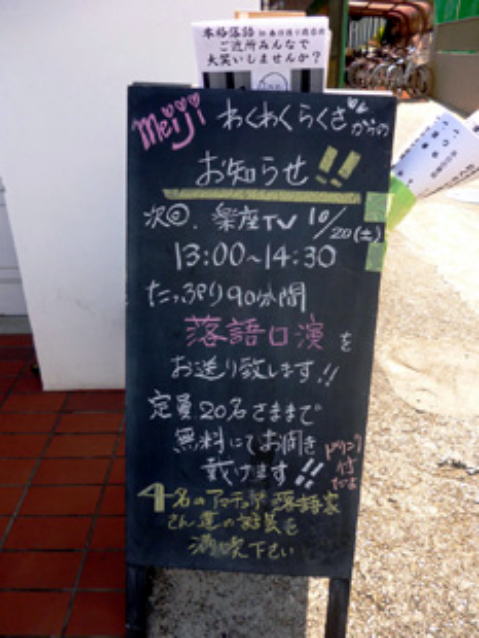 本格落語 in
ご近所みんなで
大笑いしませんか？
meiji わくわくらくざからの
お知らせ!!
次回、楽座TV 10/20(土)
13:00~14:30
たっぷり90分間
落語口演を
お送り致します!!
定員20名さままで
無料にてお聞き
戴けます!!
ドリンク
付
だよ
4名のアマチュア落語家
さん達の
下さい